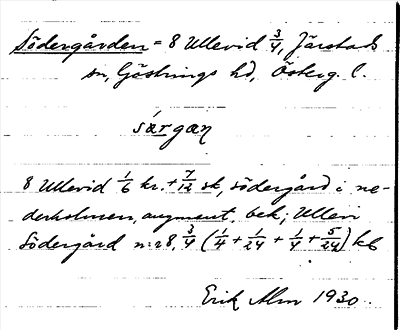 Södergården = 8 Ullevid 3/4, Järstads
sn, Göstrings hd, Österg. l.
sárgan
8 Ullevid 1/6 kr. + 7/12 sk, södergård i ne-
derholmen, augment. bek; Ullevi
Södergård n:r 8, 3/4 (1/4 + 1/24 + 1/4 + 5/24) kb
Erik Alm 1930.